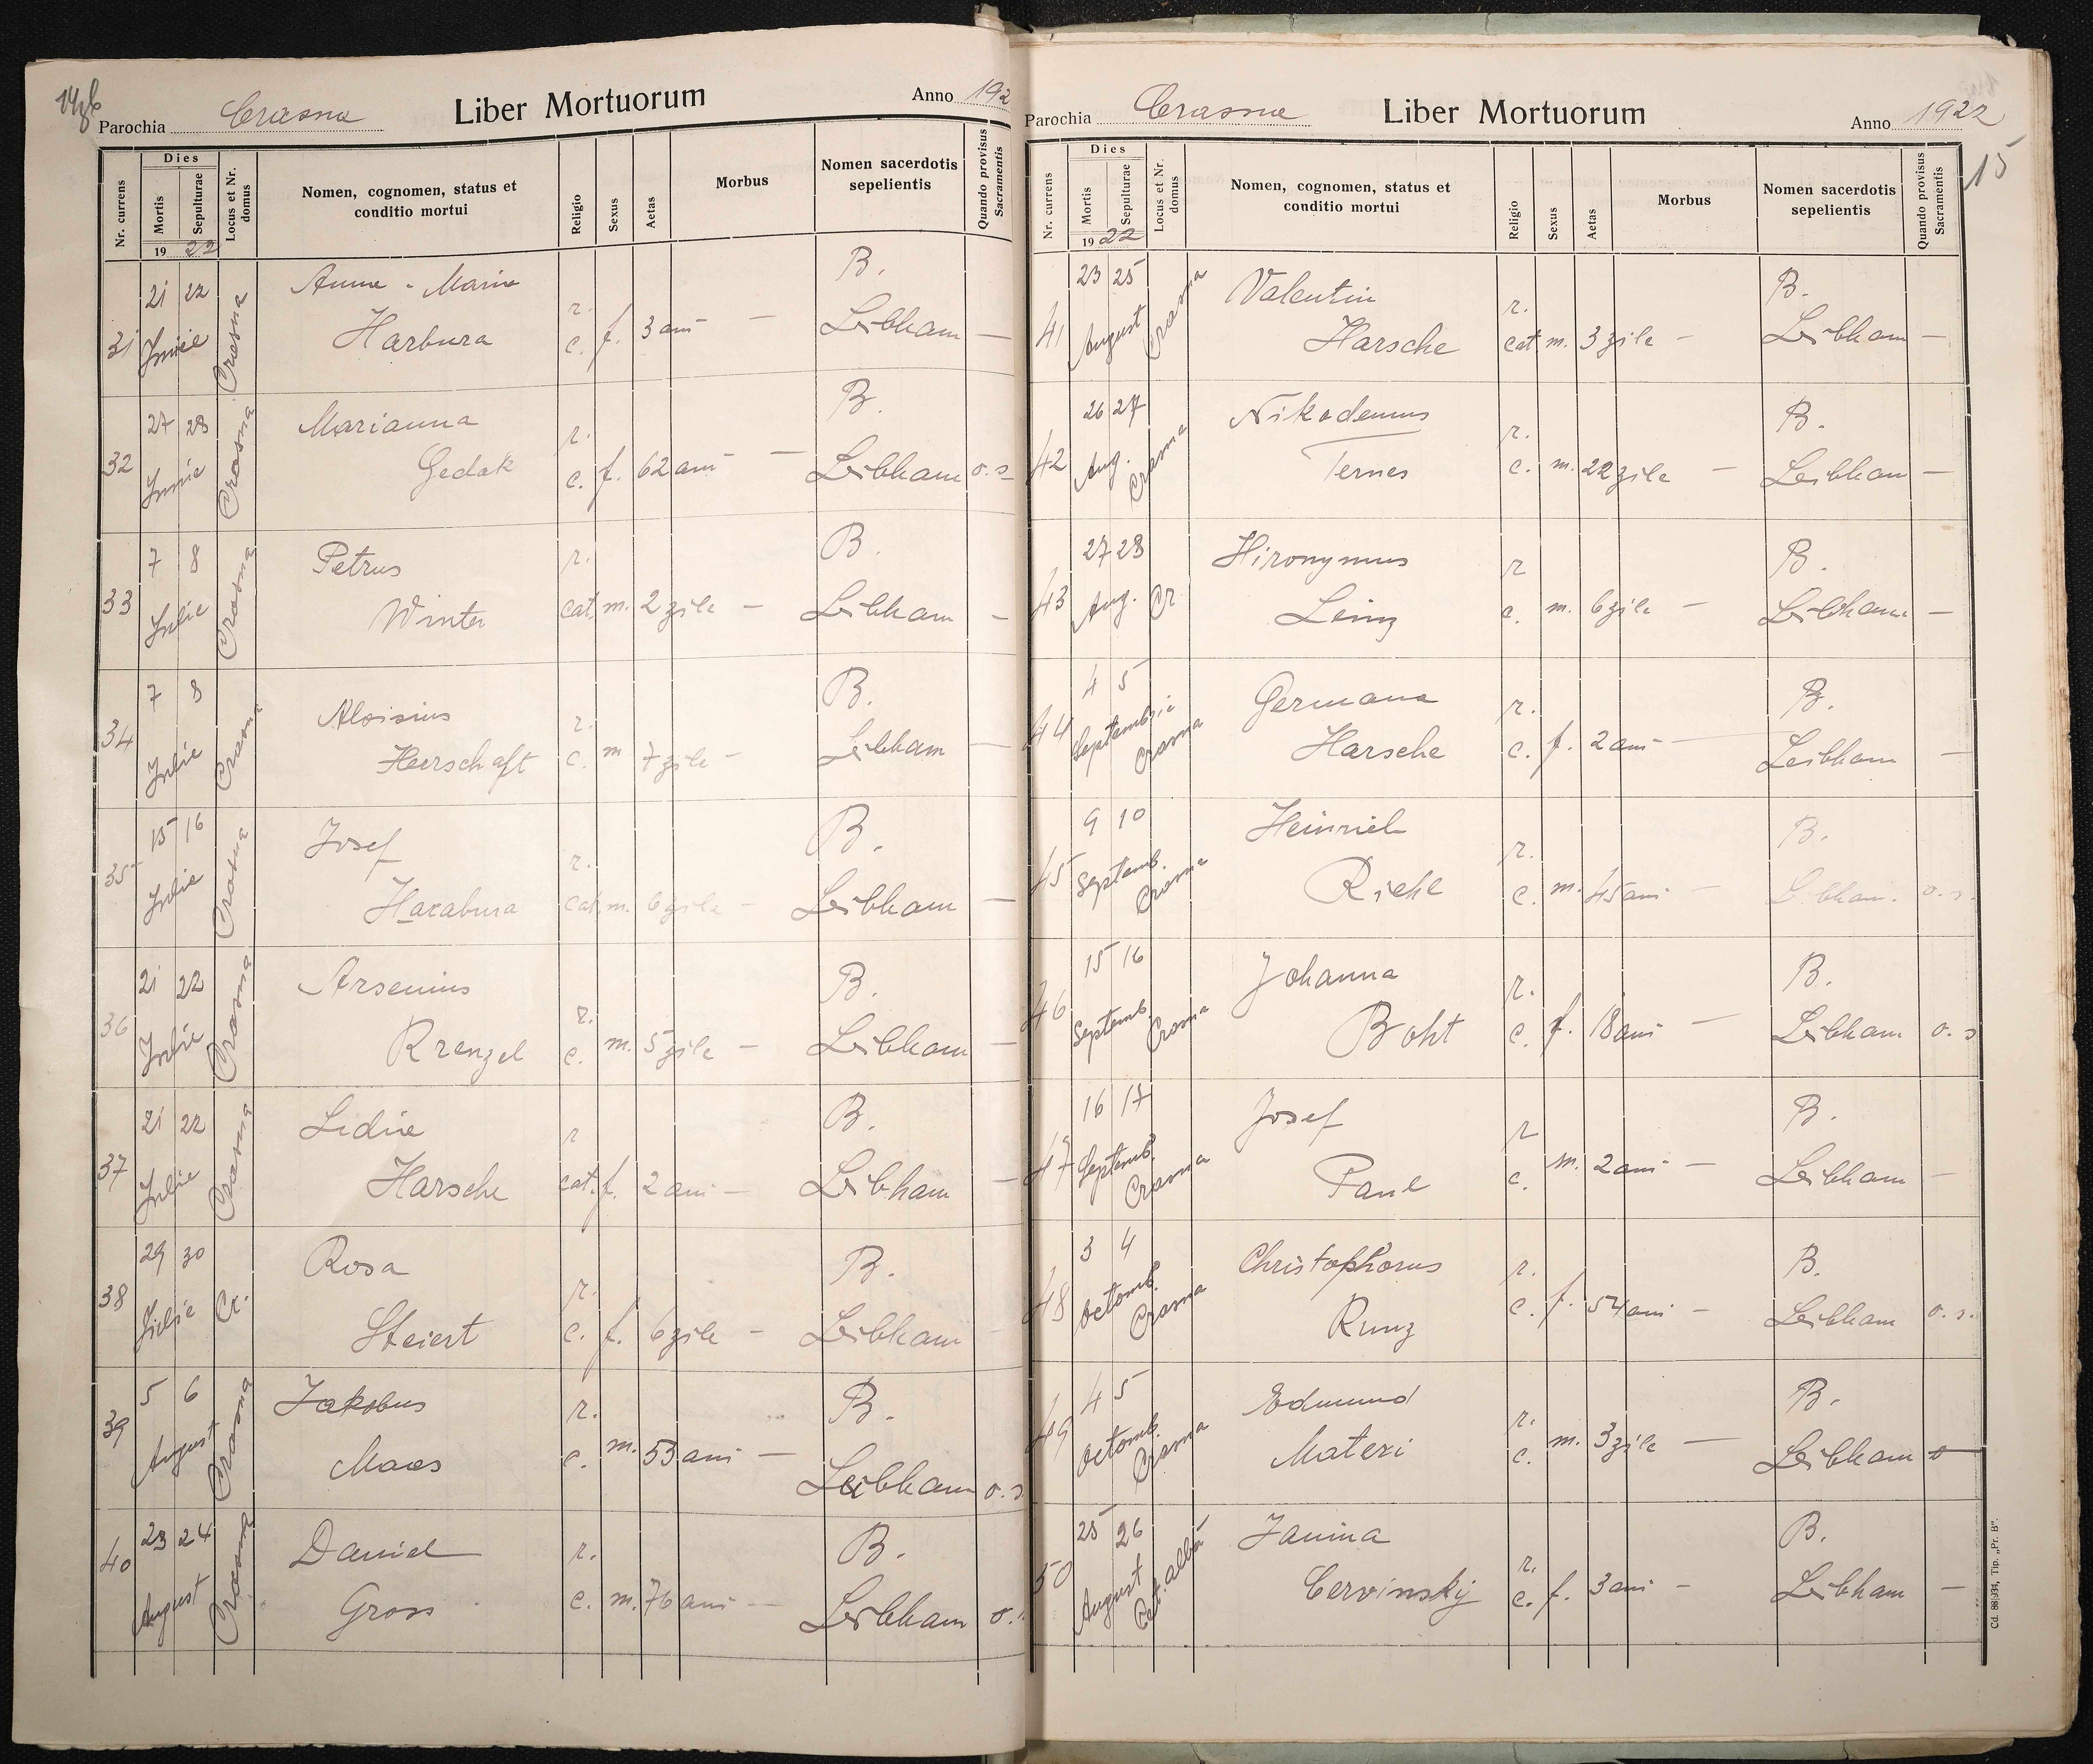 Parochia Crasna Liber Mortuorum Anno 192
Nr. currens
Dies
Mortis
Sepulturae
19 22
Locus et Nr. domus
Nomen, cognomen, status et
conditio mortui
Religio
Sexus
Aetas
Morbus
Nomen sacerdotis
sepelientis
Quando provisus
Sacramentis
21 22 Anna - Maria r. B.
31 Junie Crasna Harbura c. f. 3 ani — Leibham —
27 28 Marianna r. B.
32 Junie Crasna Gedak c. f. 62 ani — Leibham o. s
7 8 Petrus r. B.
33 Julie Crasna Winter cat. m. 2 zile — Leibham —
7 8 Aloisius r. B.
34 Julie Crasna Herschaft c. m 7 zile — Leibham —
15 16 Josef r. B.
35 Julie Crasna Harabura cat. m. 6 zile — Leibham —
21 22 Arsenius r. B.
36 Julie Crasna Krenzel c. m. 5 zile — Leibham —
21 22 Lidia r B.
37 Julie Crasna Harsche cat. f. 2 ani — Leibham —
29 30 Rosa r. B.
38 Julie Cr. Steiert c. f. 6 zile — Leibham —
5 6 Jakobus r. B.
39 August Crasna Maas c. m. 53 ani — Leibham o. s
23 24 Daniel r. B.
40 August Crasna Gross c. m. 76 ani — Leibham o.
Parochia Crasna Liber Mortuorum Anno 1922
15
Nr. currens
Dies
Mortis
Sepulturae
19 22
Locus et Nr. domus
Nomen, cognomen, status et
conditio mortui
Religio
Sexus
Aetas
Morbus
Nomen sacerdotis
sepelientis
Quando provisus
Sacramentis
23 25 Valentin r. B.
41 August Crasna Harsche cat. m. 3 zile — Leibham —
26 27 Nikodemus r. B.
42 Aug. Crasna Ternes c. m. 22 zile — Leibham —
27 28 Hironymus r B.
43 Aug. Cr Leinz c. m. 6 zile — Leibham —
4 5 Germana r. B.
44 Septembrie Crasna Harsche c. f. 2 ani — Leibham —
9 10 Heinrich r. B.
45 Septemb. Crasna Riehl c. m. 45 ani — Leibham. o. s.
15 16 Johanna r. B.
46 Septemb. Crasna Boht c. f. 18 ani — Leibham o. s
16 17 Josef r B.
47 Septemb. Crasna Paul c. m. 2 ani — Leibham —
3 4 Christophorus r. B.
48 Octomb. Crasna Runz c. f. 54 ani — Leibham o. s.
4 5 Edmund r. B.
49 Octomb. Crasna Materi c. m. 3 zile — Leibham —
25 26 Janina r. B.
50 August Cet. albă Cervinskij c. f. 3 ani — Leibham —
Cd. 88934, Tip. „Pr. B".